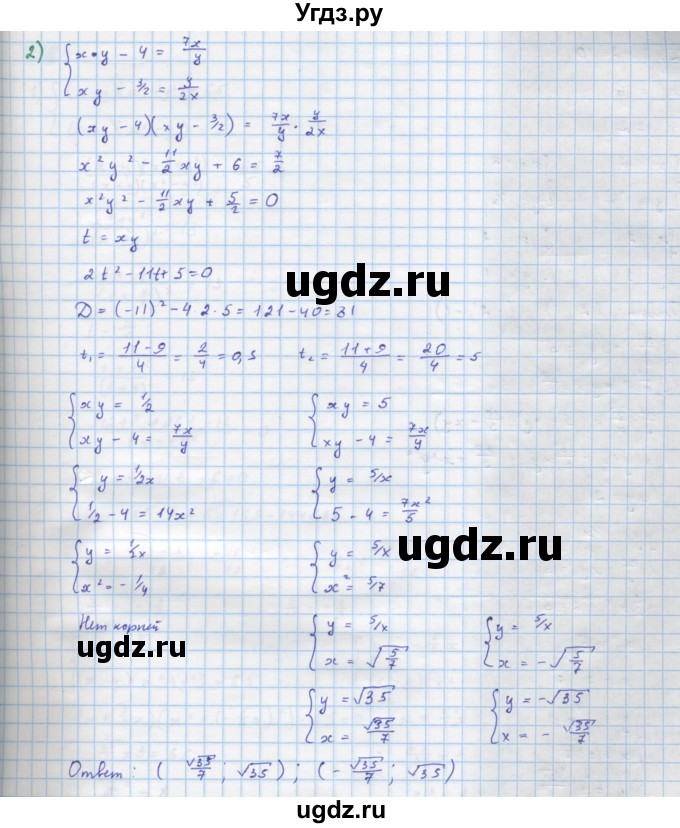 Угдз.ру
2) { x•y - 4 = 7x/y
xy - 3/2 = y/2x
(xy - 4)(xy - 3/2) = 7x/y · y/2x
x²y² - 11/2 xy + 6 = 7/2
x²y² - 11/2 xy + 5/2 = 0
t = xy
2t² - 11t + 5 = 0
ugdz.ru
D = (-11)² - 4 2·5 = 121 - 40 = 81
t₁ = 11-9/4 = 2/4 = 0,5 t₂ = 11+9/4 = 20/4 = 5
{ xy = 1/2 { xy = 5
xy - 4 = 7x/y xy - 4 = 7x/y
{ y = 1/2x { y = 5/x
1/2 - 4 = 14x² 5 - 4 = 7x²/5
ugdz.ru
{ y = 1/2x { y = 5/x
x² = - 1/4 x² = 5/7
Нет корней { y = 5/x { y = 5/x
ugdz.ru
x = √5/7 x = - √5/7
{ y = √35 { y = - √35
x = √35/7 x = - √35/7
Ответ: ( √35/7 ; √35 ) ; ( - √35/7 ; √35 )
ugdz.ru